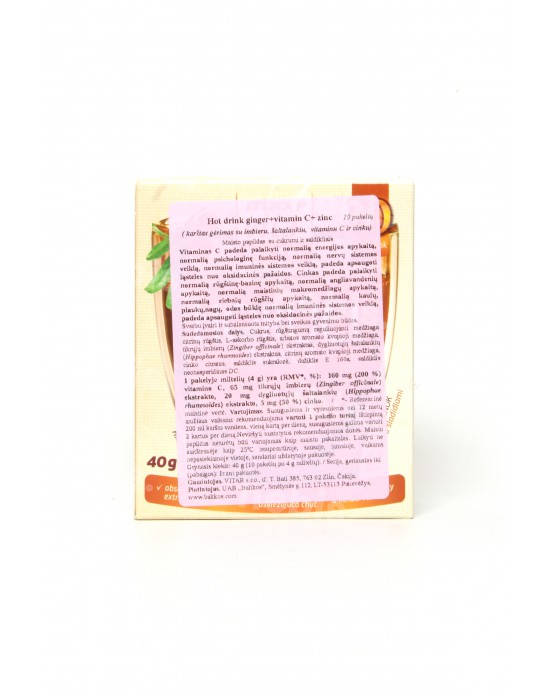 Hot drink ginger+vitamin C+ zinc 10 pakelių
( karštas gėrimas su imbieru, šaltalankiu, vitaminu C ir cinku)
Maisto papildas su cukrumi ir saldikliais
Vitaminas C padeda palaikyti normalią energijos apykaitą,
normalią psichologinę funkciją, normalią nervų sistemos
veiklą, normalią imuninės sistemos veiklą, padeda apsaugoti
ląsteles nuo oksidacinės pažaidos. Cinkas padeda palaikyti
normalią rūgščių-bazinę apykaitą, normalią angliavandenių
apykaitą, normalią maistinių makromedžiagų apykaitą,
normalią riebalų rūgščių apykaitą, normalią kaulų,
plaukų,nagų, odos būklę normalią imuninės sistemos veiklą,
padeda apsaugoti ląsteles nuo oksidacinės pažaidos.
Svarbu įvairi ir subalansuota mityba bei sveikas gyvenimo būdas.
Sudedamosios dalys. Cukrus, rūgštingumą reguliuojanti medžiaga,
citrinų rūgštis, L-askorbo rūgštis, arbatos aromato kvapioji medžiaga,
tikrųjų imbierų (Zingiber officinale) ekstraktas, dygliuotųjų šaltalankių
(Hippophae rhamnoides) ekstraktas, citrinų aromato kvapioji medžiaga,
cinko citratas, saldiklis sukralozė, dažiklis E 160a, saldiklis
neohesperidinas DC.
1 pakelyje miltelių (4 g) yra (RMV*, %): 160 mg (200 %)
vitamino C, 65 mg tikrųjų imbierų (Zingiber officinale)
ekstrakto, 20 mg dygliuotųjų šaltalankių (Hippophae
rhamnoides) ekstrakto, 5 mg (50 %) cinko. *- Referencinė
maistinė vertė. Vartojimas. Suaugusiems ir vyresniems nei 12 metų
amžiaus vaikams rekomenduojama vartoti 1 pakelio turinį ištirpiną
200 ml karšto vandens, vieną kartą per dieną, suaugusiems galima vartoti
2 kartus per dieną. Neviršyti nustatytos rekomenduojamos dozės. Maisto
papildas neturėtų būti vartojamas kaip maisto pakaitalas. Laikyti ne
aukštesnėje kaip 25°C temperatūroje, sausoje, tamsioje, vaikams
nepasiekiamoje vietoje, sandariai uždarytoje pakuotėje.
Grynasis kiekis: 40 g (10 pakelių po 4 g miltelių). Serija, geriausias iki
(pabaiga): žr. ant pakuotės.
Gamintojas. VITAR s.r.o., tř. T. Bati 385, 763 02 Zlín, Čekija.
Platintojas. UAB „Baltkos", Smėlynės g. 112, LT-53113 Panevėžys,
www.baltkos.com
40g
✓ obs
extr